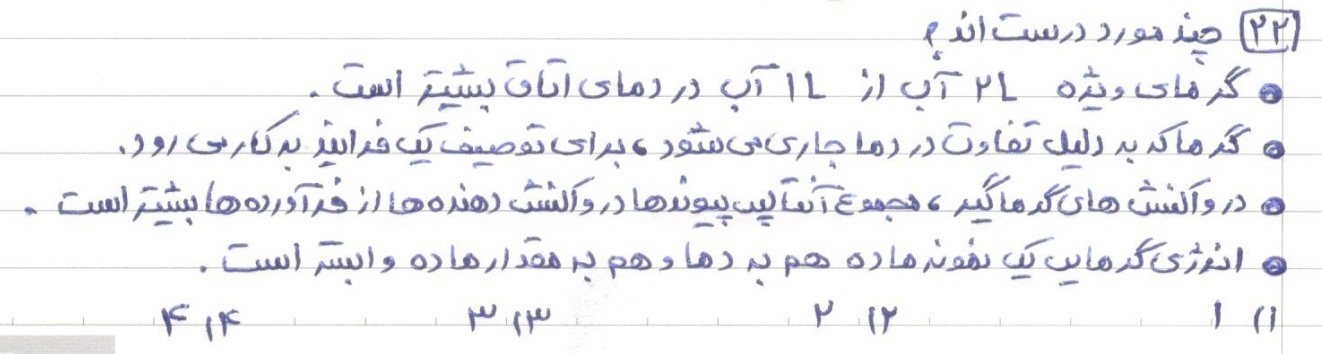 ۲۲ چند مورد درست اند؟
• گرمای ویژه ۲L آب از ۱L آب در دمای اتاق بیشتر است.
• گرما که به دلیل تفاوت در دما جاری می شود، برای توصیف یک فرایند به کار می رود.
• در واکنش های گرماگیر، مجموع آنتالپی پیوندها در واکنش دهنده ها از فرآورده ها بیشتر است.
• انرژی گرمایی یک نمونه ماده هم به دما و هم به مقدار ماده وابسته است.
۱) ۱ ۲) ۲ ۳) ۳ ۴) ۴